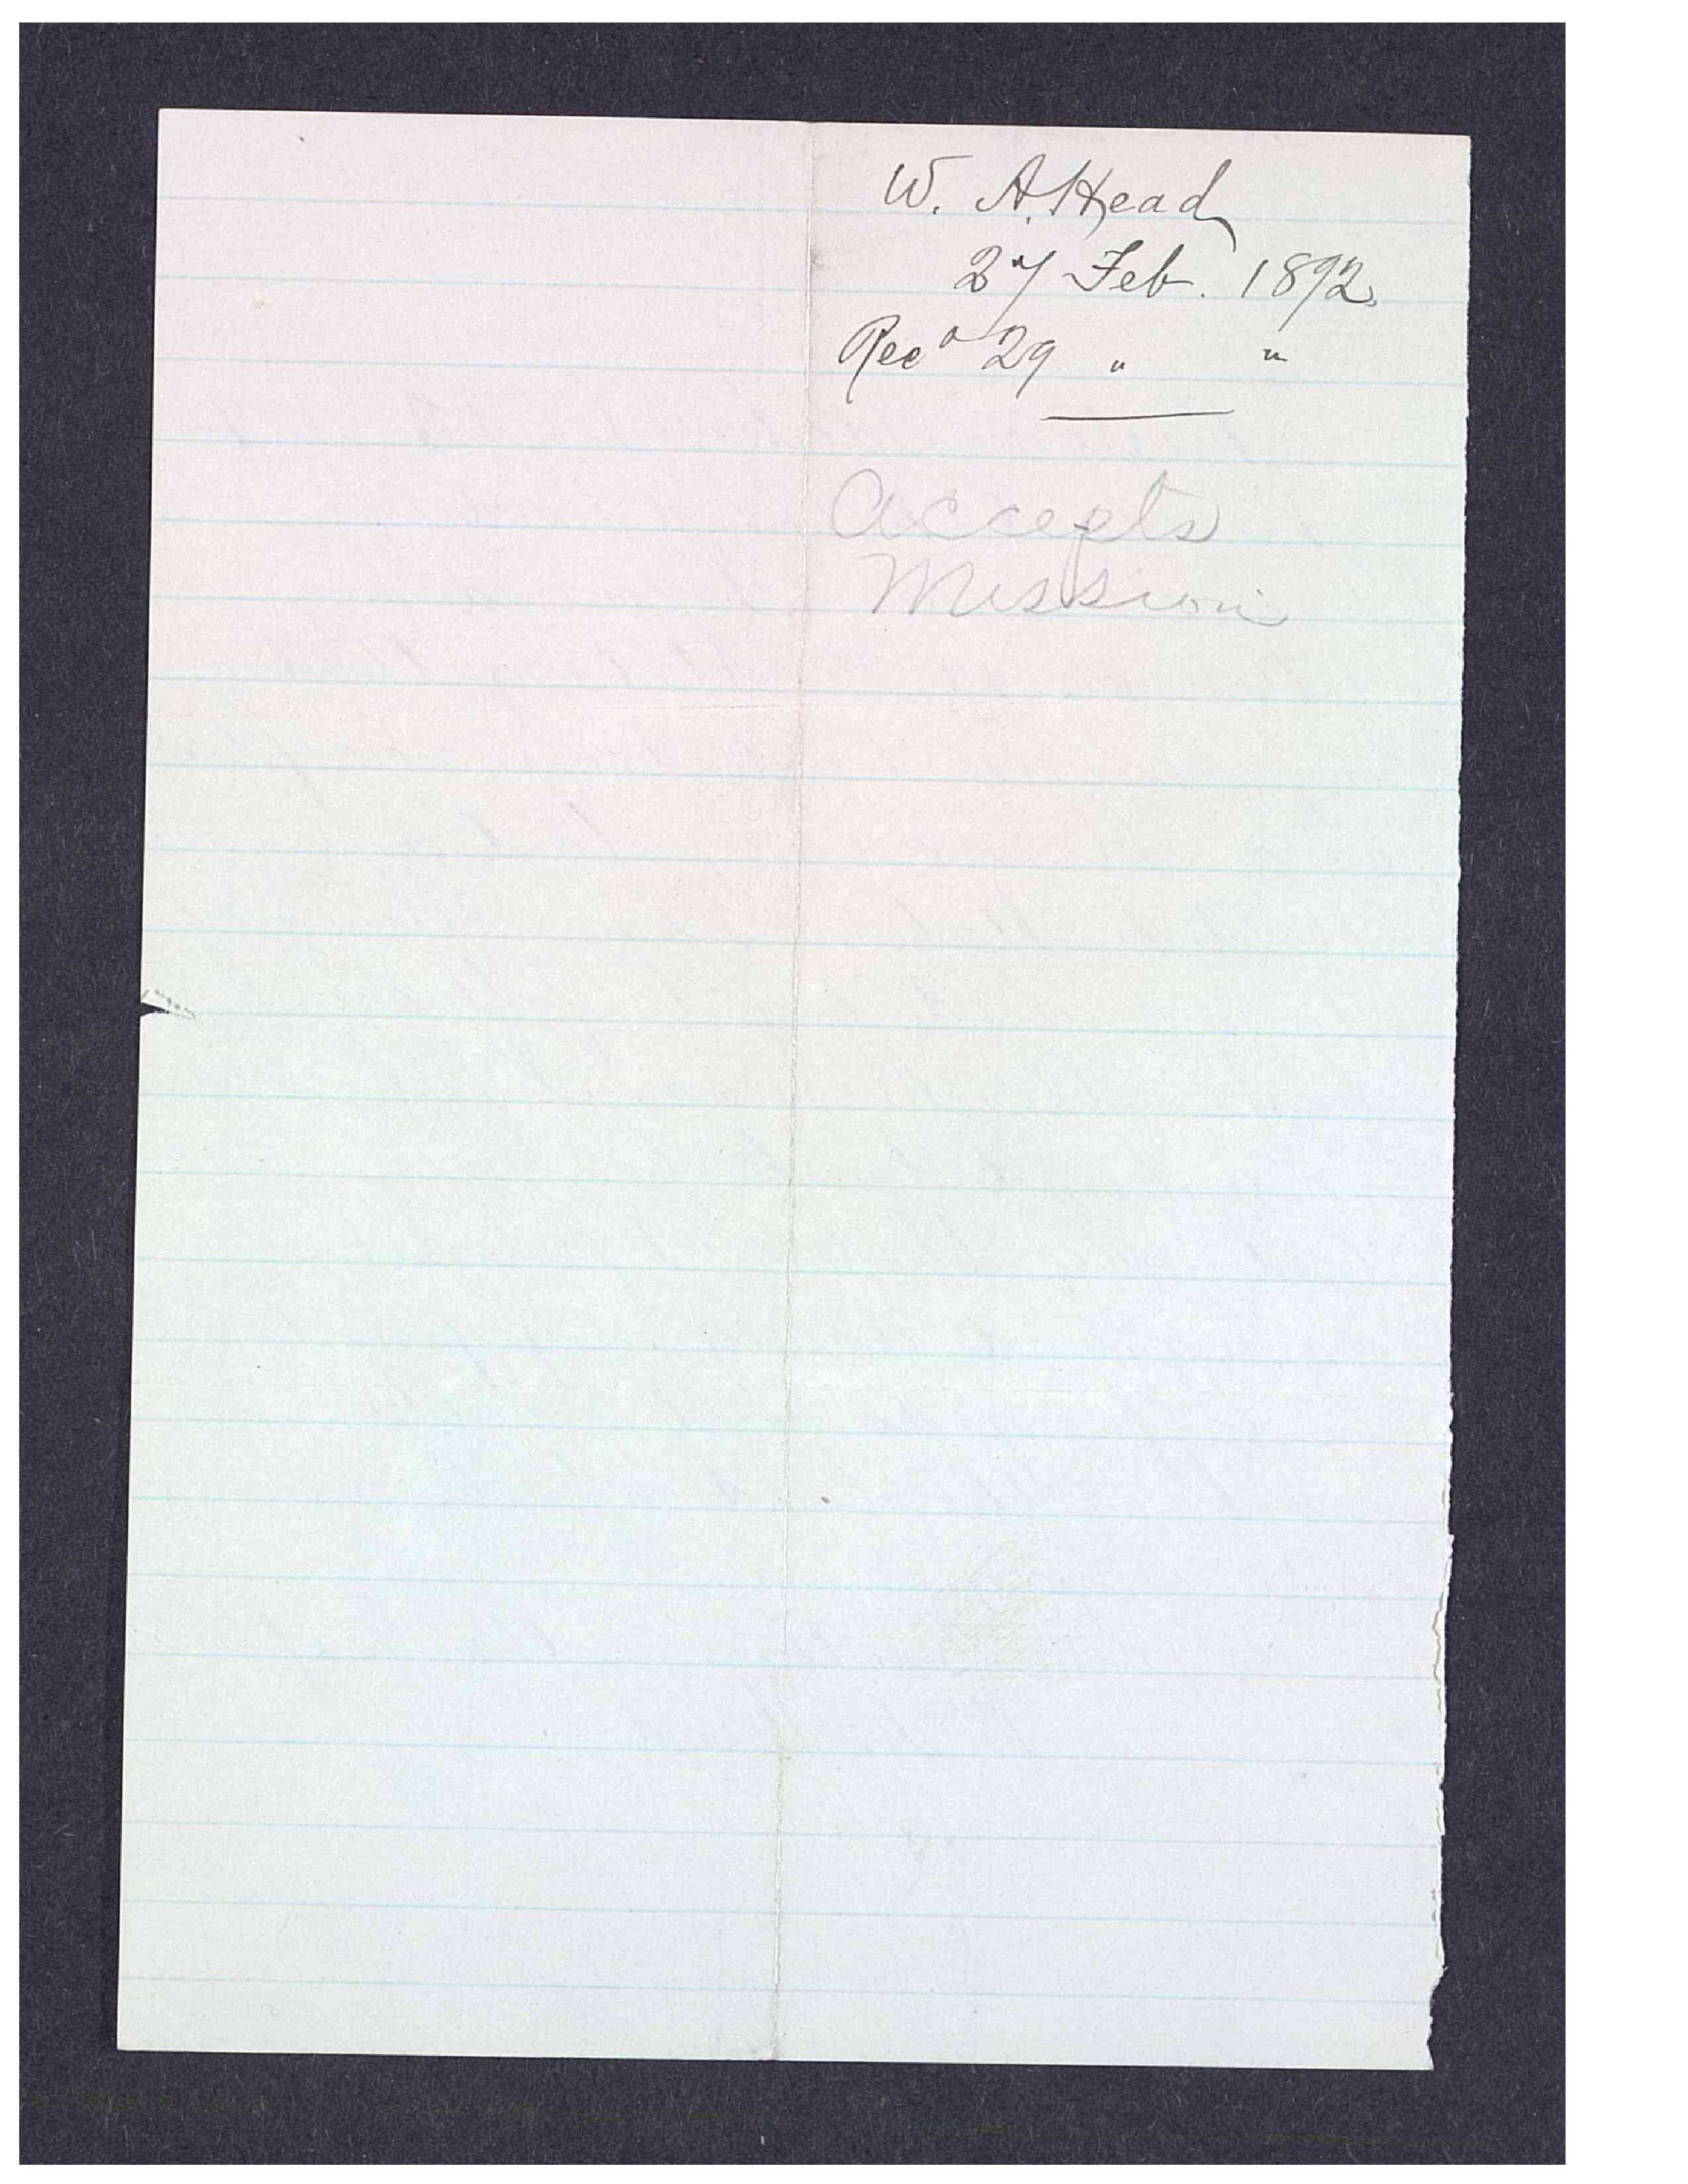 W. A. Head
27 Feb. 1892.
Recd 29 " "
Accepts
Mission